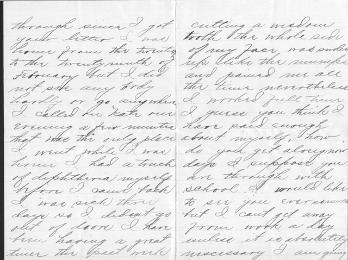 through since I got
your letter I was
home from the twenty
to the twentyninth of
February but I did
not see any body
hardly or go anywhere
I called on Kate one
evening a few minutes
that was the only place
I went while I was
home I had a touch
of diphtheria myself
before I came back
I was sick three
days so I dident go
out of doors I have
been having a great
time the past week
cutting a wisdom
tooth the whole side
of my face was swolen
up like the mumps
and pained me all
the time nevertheless
I worked full time
I guess you think I
have said enough
about myself, how
do you get along now
days I suppose you
are through with
school I would like
to see you ever so much
but I cant get away
from work a day
unless it is absolutely
necessary I am going